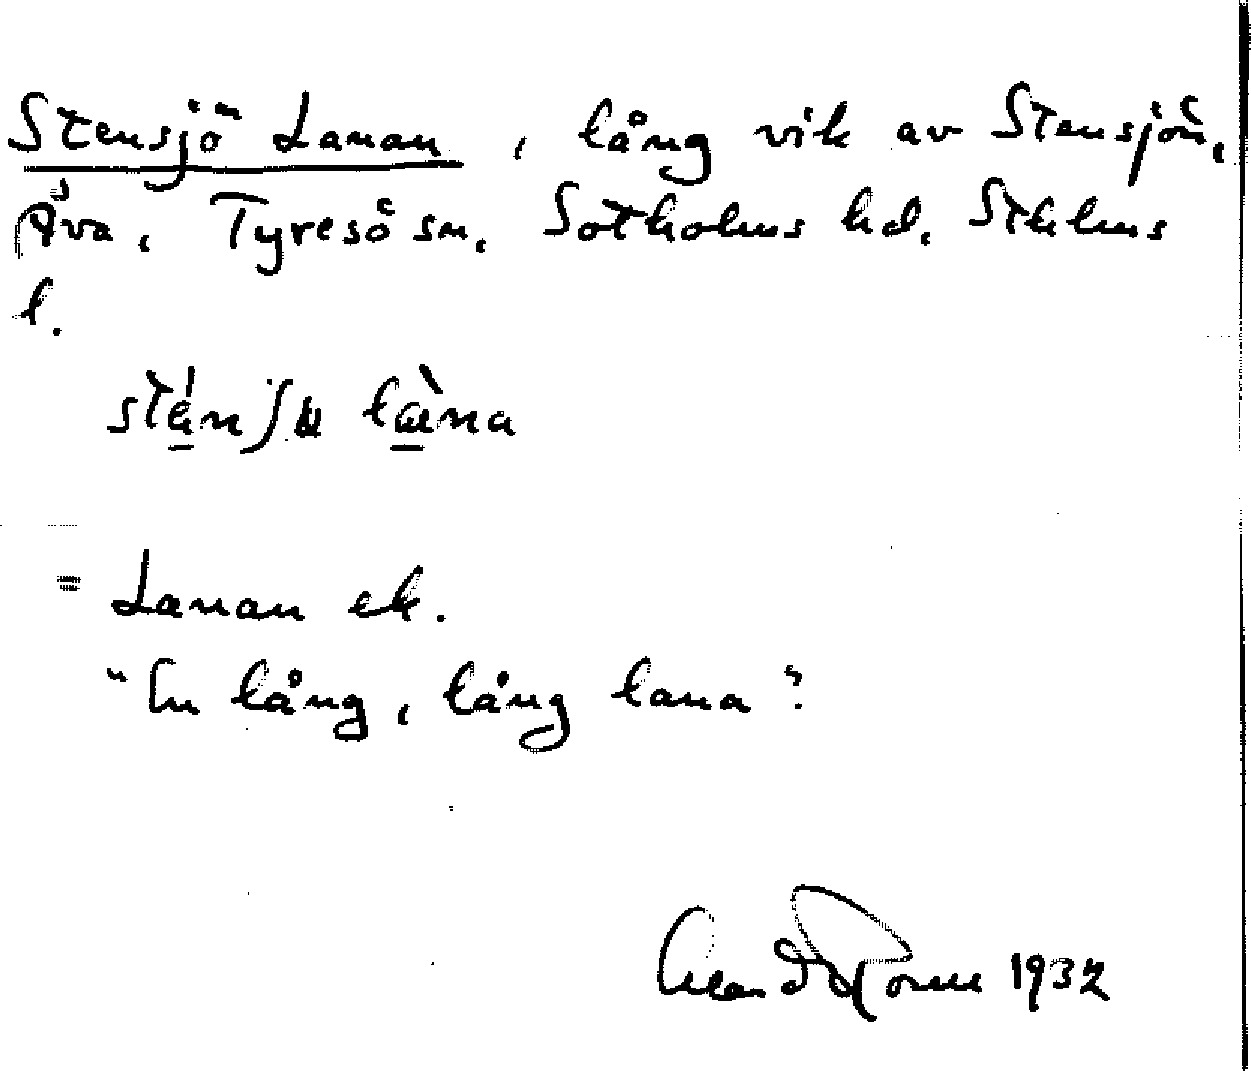 Stensjö Lanan, lång vik av Stensjön,
Åva, Tyresö sn, Sotholms hd, Sthlms
l.
stę́nʃɯ læ̀na
= Lanan ek.
"En lång, lång lana".
1932